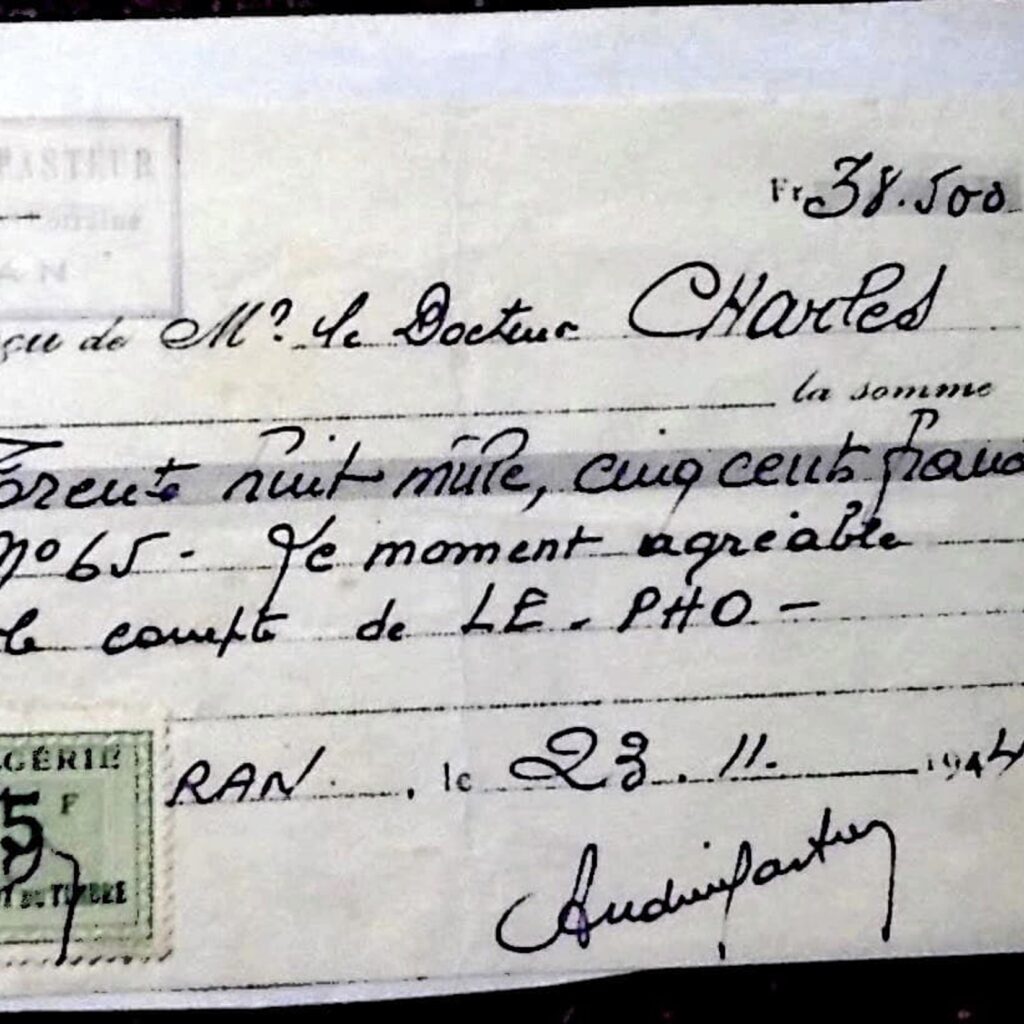 PASTEUR
Fr 38.500
çu de Mr. le Docteur CHARLES
la somme
Trente huit mille, cinq cents franc
No 65 - Le moment agréable
le compte de LE - PHO -
GÉRIE
5 F
T DU TIMBRE
RAN . , le 23.11. 1944